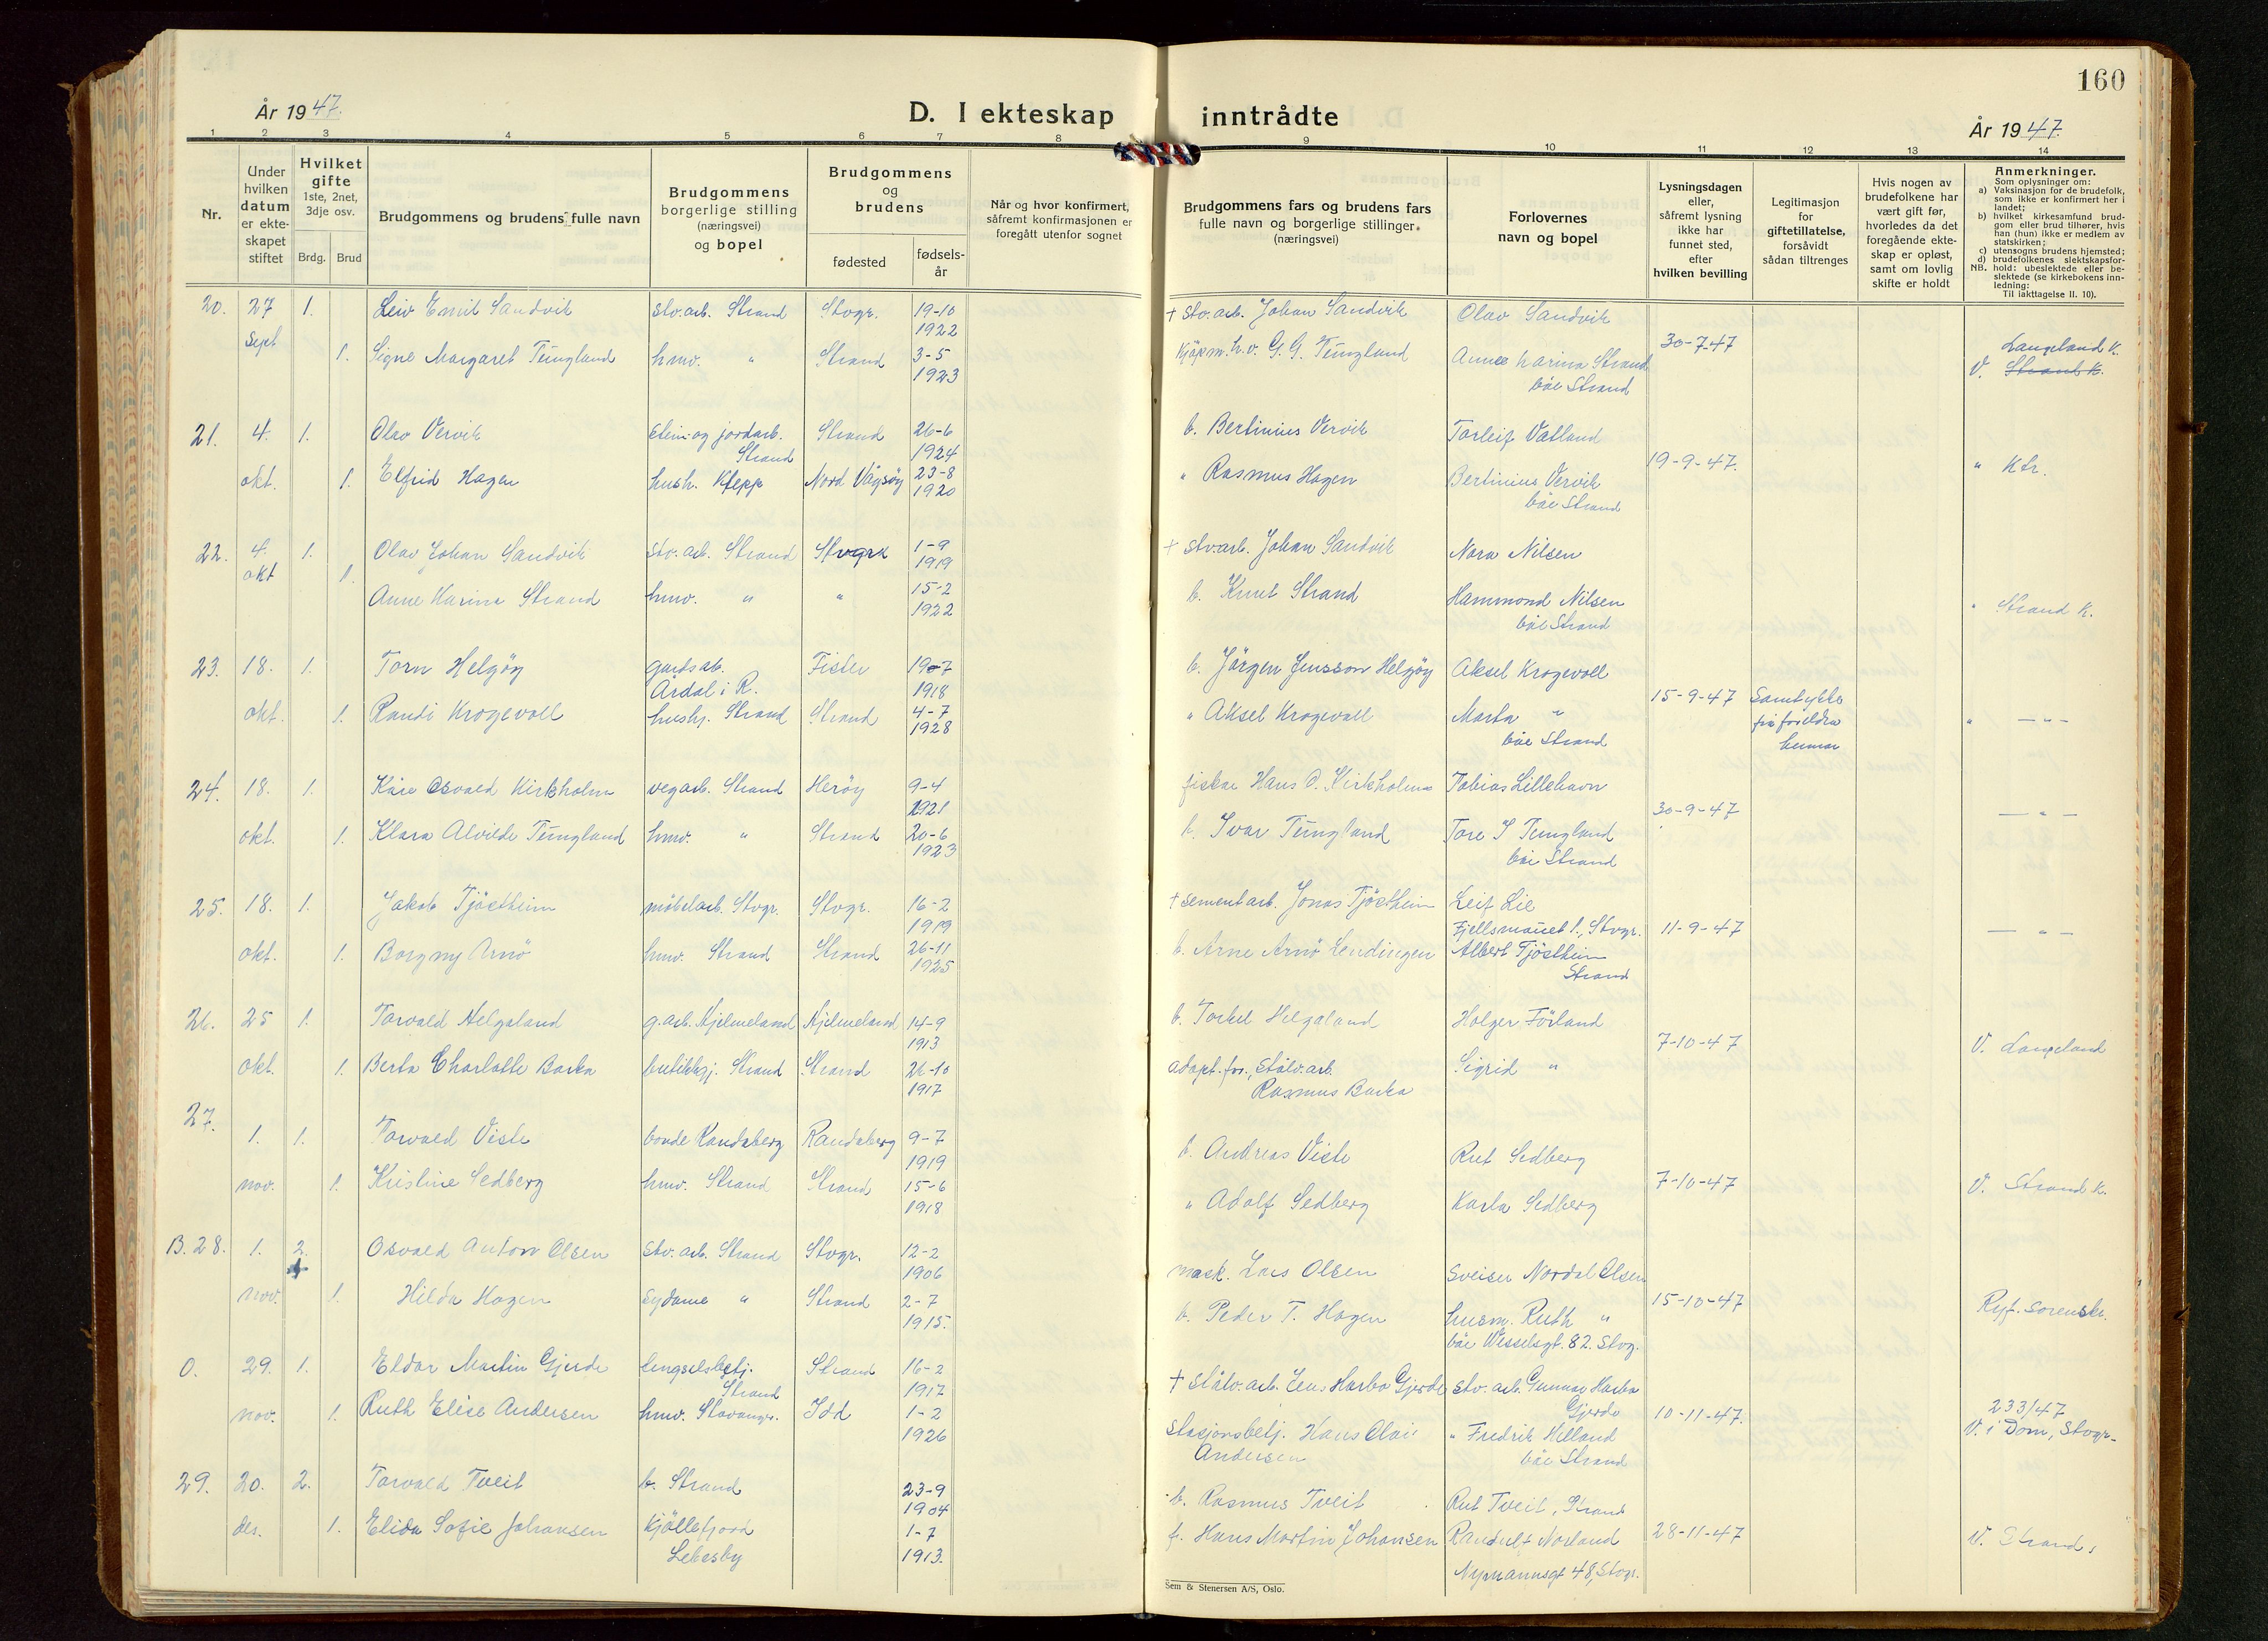 160
År 1947.
D. I ekteskap inntrådte
År 1947.
1 2 3 4 5 6 7 8 9 10 11 12 13 14
Nr.
Under hvilken datum er ekteskapet stiftet
Hvilket gifte 1ste, 2net, 3dje osv.
Brdg. Brud
Brudgommens og brudens fulle navn
Brudgommens borgerlige stilling (næringsvei) og bopel
Brudgommens og brudens
fødested
fødselsår
Når og hvor konfirmert, såfremt konfirmasjonen er foregått utenfor sognet
Brudgommens fars og brudens fars fulle navn og borgerlige stillinger. (næringsvei)
Forlovernes navn og bopel
Lysningsdagen eller, såfremt lysning ikke har funnet sted, efter hvilken bevilling
Legitimasjon for giftetillatelse, forsåvidt sådan tiltrenges
Hvis nogen av brudefolkene har vært gift før, hvorledes da det foregående ekteskap er opløst, samt om lovlig skifte er holdt
Anmerkninger.
Som oplysninger om:
a) Vaksinasjon for de brudefolk, som ikke er konfirmert her i landet;
b) hvilket kirkesamfund brudgom eller brud tilhører, hvis han (hun) ikke er medlem av statskirken;
c) utensogns brudens hjemsted;
d) brudefolkenes slektskapsforhold: ubeslektede eller beslektede (se kirkebokens innledning:
NB. Til iakttagelse II. 10).
20. 27 1. Leiv Emil Sandvik stv.arb. Strand Stvgr. 19-10 1922 + stv.arb. Johan Sandvik Olav Sandvik
sept 1. Signe Margaret Tungland hmv. " Strand 3-5 1923 Kjøpm. h.v. G. G. Tungland Anne Karina Strand 30-7-47 Langeland K.
båe Strand V. Strand K.
21. 4. 1. Olav Vervik stein og jordarb. Strand Strand 26-6 1924 b. Bertinius Vervik Torleif Vatland
okt. 1. Elfrid Hagen hush. Klepp Nord Vågsøy 23-8 1920 " Rasmus Hagen Bertinius Vervik 19-9-47. " Ktr.
båe Strand
22. 4. 1. Olav Johan Sandvik stv.arb. Strand Stvgr 1-9 1919 + stv.arb. Johan Sandvik Nora Nilsen
okt 1. Anne Karina Strand hmv. " " 15-2 1922 b. Knut Strand Hammond Nilsen " Strand K.
båe Strand
23. 18. 1. Torn Helgøy gardsab. Årdal i R. Fister 19-7 1918 b. Jørgen Jensson Helgøy Aksel Krogevoll
okt. 1. Randi Krogevoll hushj. Strand Strand 4-7 1928 " Aksel Krogevoll Marta " 15-9-47 Samtykke frå foreldra hennar " — " —
båe Strand
24. 18. 1. Kåre Osvald Kirkholm vegarb. Strand Herøy 9-4 1921 fiskar Hans O. Kirkholm Tobias Lillehavn
okt. 1. Klara Alvilde Tungland hmv. " Strand 20-6 1923 b. Ivar Tungland Tore S Tungland 30-9-47 — " —
båe Strand
25. 18. 1. Jakob Tjøstheim møbelarb. Stvgr. Stvgr. 16-2 1919 + sementarb. Jonas Tjøstheim Leif Lie
Fjellsmauet 1., Stvgr. 11-9-47 — " —
okt. 1. Borgny Arnø hmv. Strand Strand 26-11 1925 b. Arne Arnø Lendingen Albert Tjøstheim
Strand
26. 25 1. Torvald Helgaland g.arb. Hjelmeland Hjelmeland 14-9 1913 b. Torkel Helgaland Holger Førland
okt. 1. Berta Charlotte Barka butikkj. Strand Strand 26-10 1917 adopt.for., stålv.arb. Rasmus Barka Sigrid " 7-10-47 V. Langeland
27. 1. 1. Torvald Viste bonde Randaberg Randaberg 9-7 1919 b. Andreas Viste Rut Sedberg
nov. 1. Kristine Sedberg hmv. Strand Strand 15-6 1918 " Adolf Sedberg Karla Sedberg 7-10-47 V. Strand K.
B. 28. 1. 2. Osvald Anton Olsen stv.arb. Strand Stvgr. 12-2 1906 mask. Lars Olsen sveiser Nordal Olsen
nov. 1. Hilda Hagen sydame " Strand 2-7 1915. b. Peder T. Hagen husm. Ruth " 15-10-47 Ryf. sorenskr.
båe Wesselsgt. 82. Stvg.
O. 29. 1. Eldar Martin Gjerde fengselsbetj. Strand Strand 16-2 1917 + stålv.arb. Jens Harbo Gjerde stv.arb. Gunnar Harbo Gjerde
nov. 1. Ruth Elise Andersen hmv. Stavanger. Idd 1-2 1926 stasjonsbetj. Hans Olai Andersen " Fredrik Helland 10-11-47. 233/47
båe Strand V. i Dom, Stvgr.
29. 20. 2. Torvald Tveit b. Strand 23-9 1904 b. Rasmus Tveit Rut Tveit, Strand
des. 1. Elida Sofie Johansen Kjøllefjord Lebesby 1-7 1913. f. Hans Martin Johansen Randulf Norland 28-11-47 V. Strand.
Nymannsgt 48, Stvgr.
Sem & Stenersen A/S, Oslo.